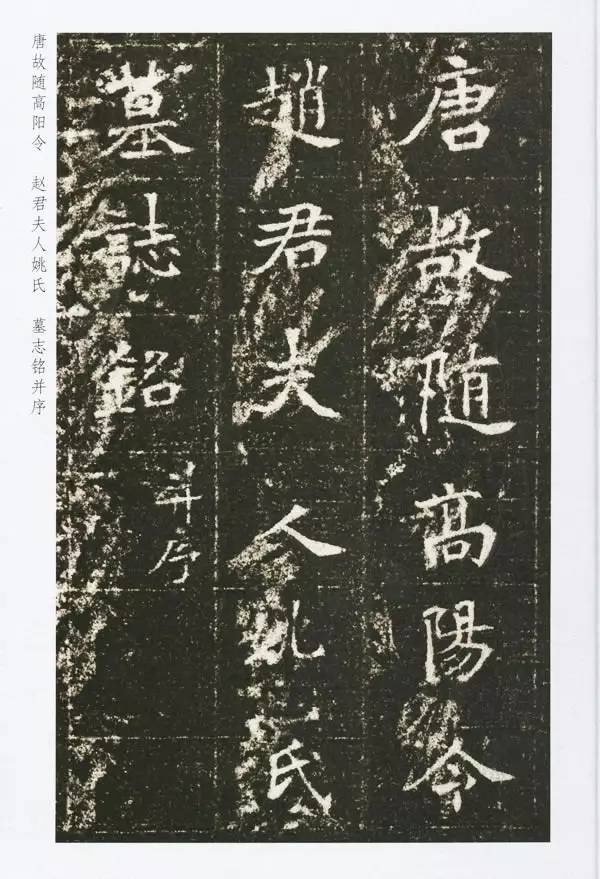 唐故随高陽令
趙君夫人姚氏
墓誌銘并序
唐故随高阳令 赵君夫人姚氏 墓志铭并序